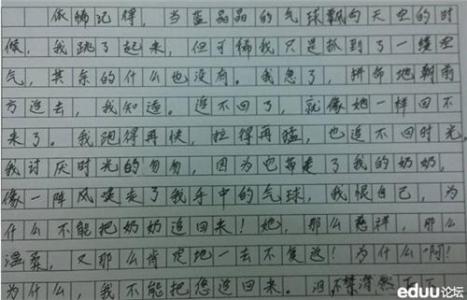 依稀记得，当蓝晶晶的气球飘向天空的时
候，我跳了起来，但可惜我只是抓到了一缕空
气，其余的什么也没有。我急了，拼命地朝前
方追去，我知道。追不回了，就像她一样回不
来了。我跑得再快，拉得再猛，也追不回时光，
我讨厌时光的匆匆，因为它带走了我的奶奶，
像一阵风吹走了我手中的气球，我恨自己，为
什么不能把奶奶追回来！她，那么慈祥，那么
温柔，又那么肯定地一去不复返！为什么啊！
为什么，我不能把您追回来。泪不禁潸然
eduu论坛